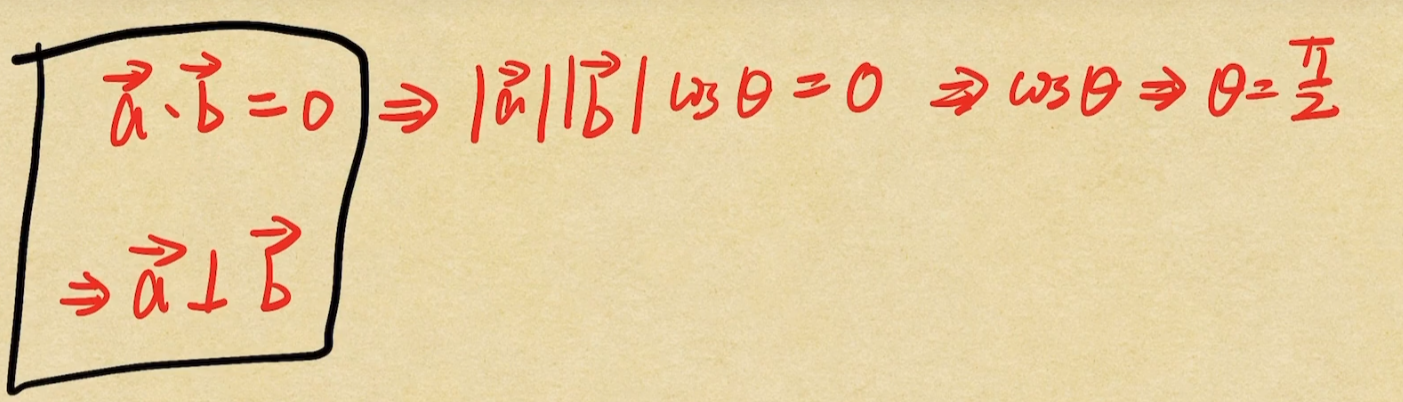 $\vec{a} \cdot \vec{b} = 0 \Rightarrow |\vec{a}||\vec{b}| \cos\theta = 0 \Rightarrow \cos\theta \Rightarrow \theta = \frac{\pi}{2}$
$\Rightarrow \vec{a} \perp \vec{b}$